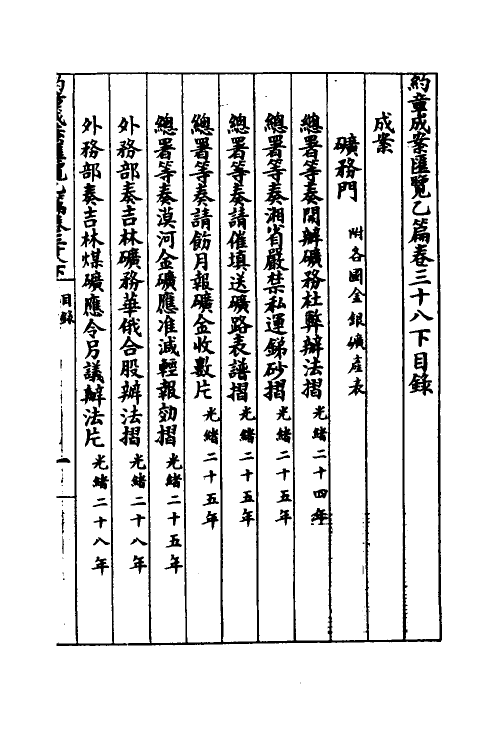 約章成案匯覽乙篇卷三十八下目錄
成案
礦務門 附各國金銀礦產表
總署等奏開辦礦務杜弊辦法摺 光緒二十四年
總署等奏湘省嚴禁私運銻砂摺 光緒二十五年
總署等奏請催填送礦路表譜摺 光緒二十五年
總署等奏請飭月報礦金收數片 光緒二十五年
總署等奏漠河金礦應准減輕報効摺 光緒二十五年
外務部奏吉林礦務華俄合股辦法摺 光緒二十八年
外務部奏吉林煤礦應令另議辦法片 光緒二十八年
目錄
一